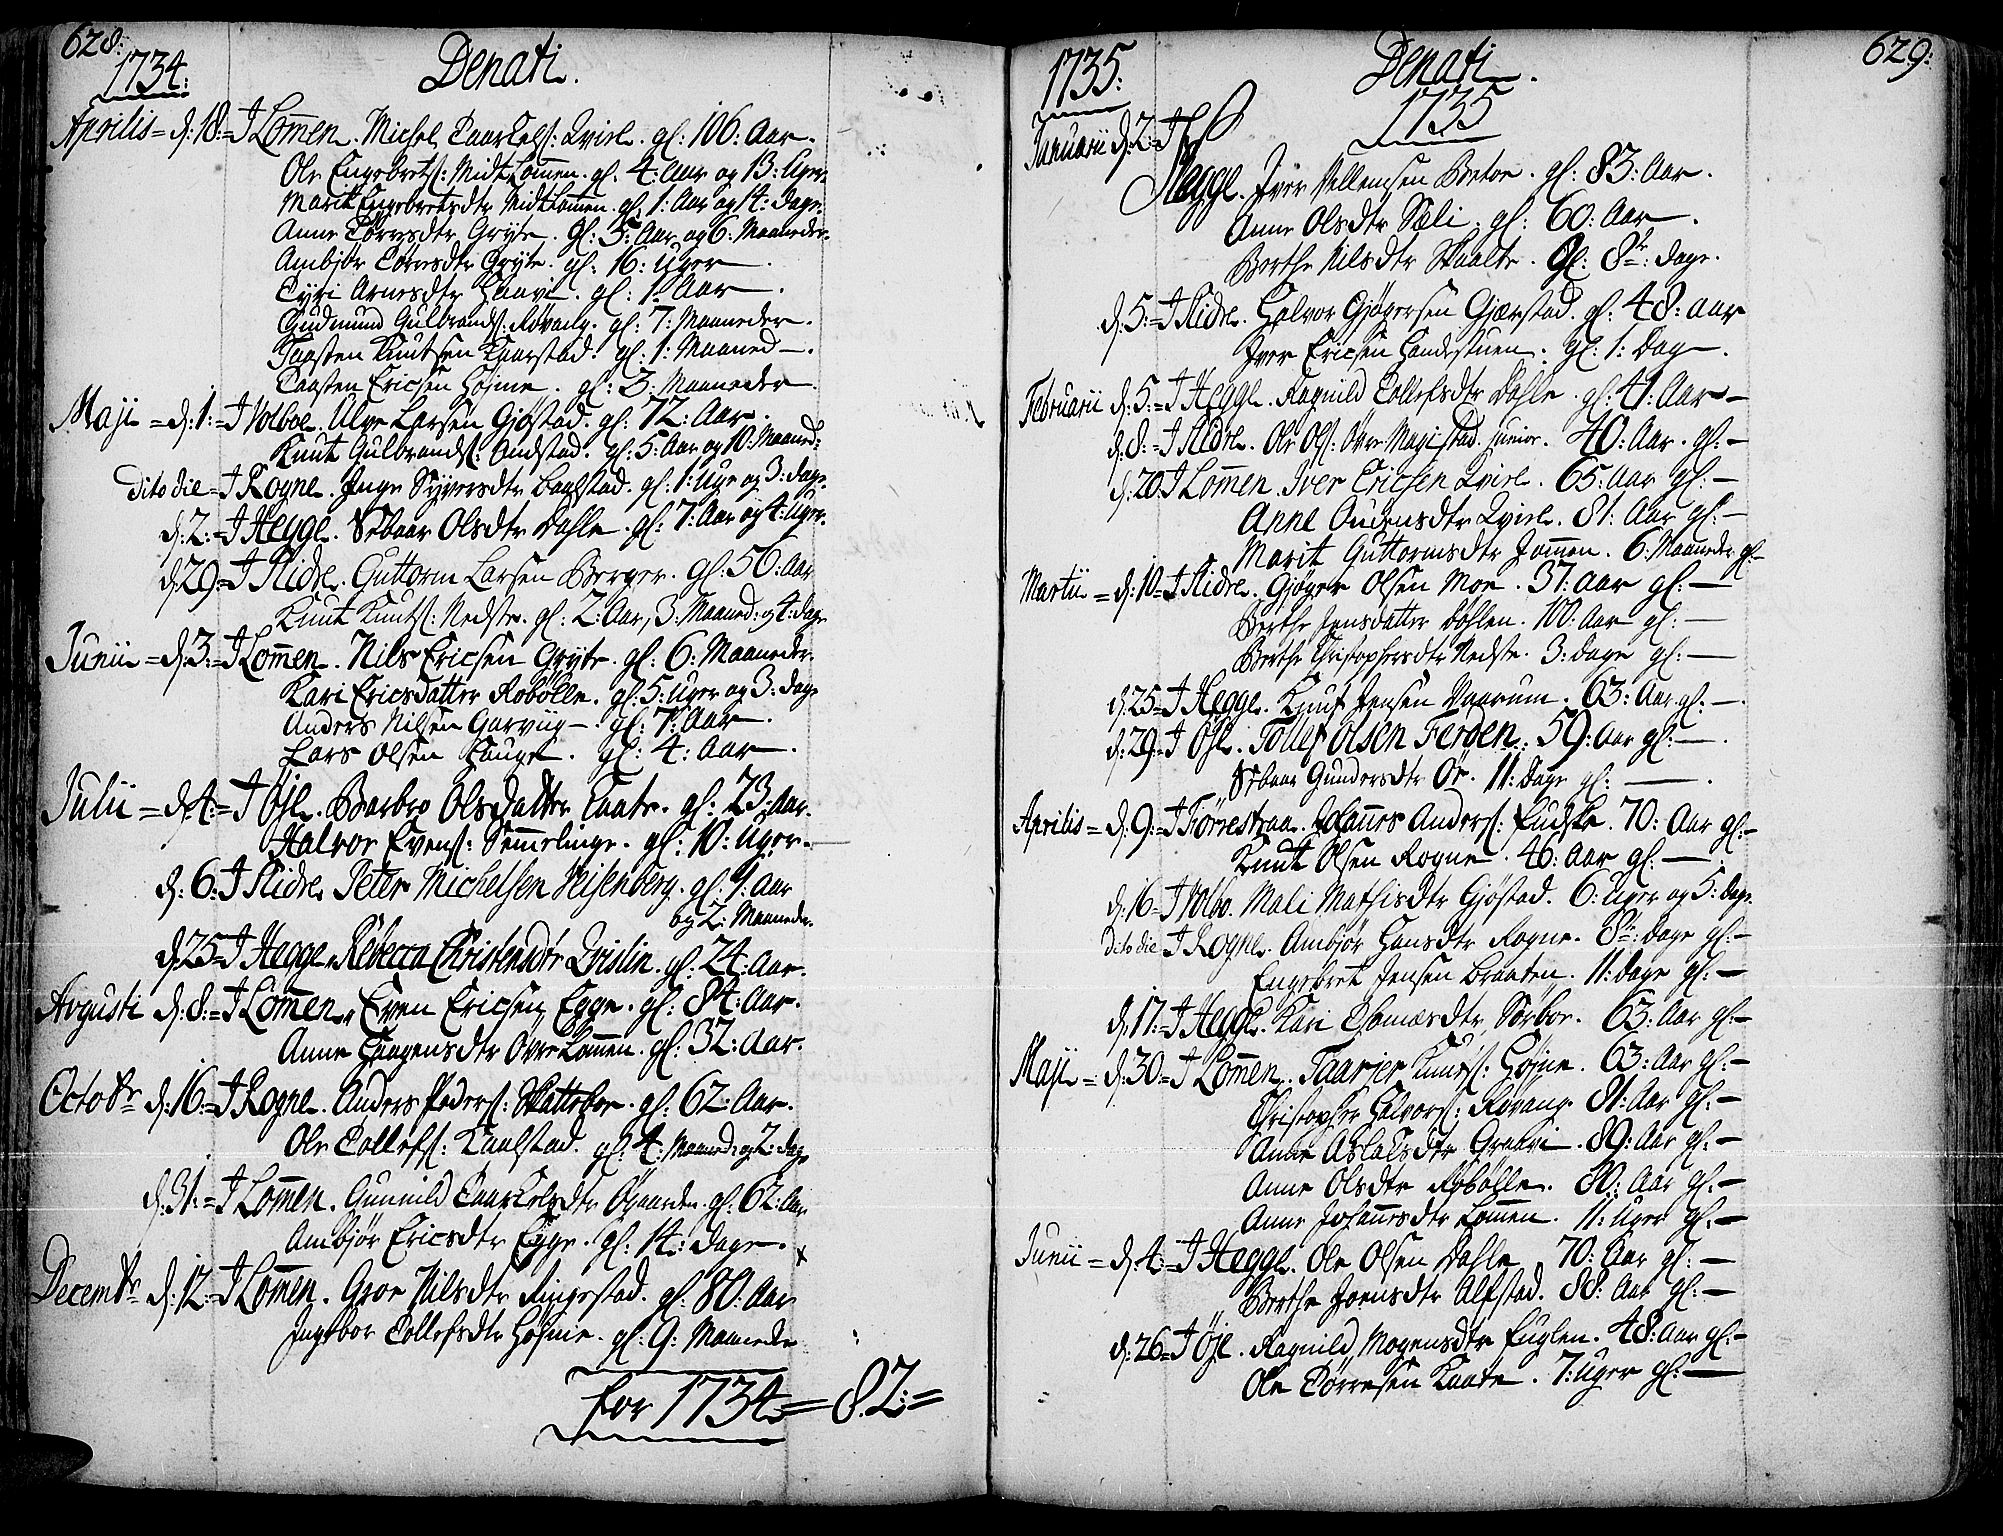 628:
1734:
Denati.
Aprilis = d: 18: = J Lomen. Michel Taarkels: Qvirl. gl: 106: Aar.
Ole Engebrets: Midt Lomen. gl. 4: Aar og 13: Uger.
Marit Engebretsdtr Midt Lomen. gl. 1: Aar og 14: dage.
Anne Torresdtr Gryte. gl: 5: Aar og 6: Maaneder.
Ambjør Torresdtr Gryte. gl: 16: Uger.
Tyri Arnesdtr Haave. gl: 1: Aar.
Gudmund Gulbrands: Røvang. gl: 7: Maaneder.
Torsten Knutsen Taarstad. gl: 1: Maaned.
Taasten Ericsen Højme. gl: 3: Maaneder.
Maji = d: 1: = J Volboe. Ulve Larsen Gjøstad. gl: 72: Aar.
Knut Gulbrands: Andstad. gl: 5: Aar og 10: Maaned:
dito die = J Rogne. Inge Syversdtr Baalstad. gl: 1: Uge og 3: dage.
d: 2: = J Hegge. Sebaar Olsdtr Dahle. gl: 7: Aar og 4: Uger.
d: 29: = J Slidre. Guttorm Larsen Berger. gl: 56: Aar
Knut Knuts: Nedstr. gl: 2: Aar, 3: Maaned: og 4: dage
Junii = d: 3: = J Lomen. Nils Ericsen Gryte. gl: 6: Maaneder.
Kari Ericsdatter Robølle. gl: 5: Uger og 3: dage
Anders Nilsen Garviig. gl: 7: Aar.
Lars Olsen Hauge. gl: 4: Aar.
Julii = d: 4: = J Øjl. Barbro Olsdatter Kaate. gl: 23: Aar.
Halvor Evens: Semmelinge. gl: 10: Uger.
d: 6: J Slidre Peter Michelsen Heisenberg. gl: 9: Aar
og 2: Maaneder.
d: 25 = J Hegge. Rebecca Christensdtr Qvislin. gl: 24: Aar.
Avgusti d: 8: = J Lomen. Even Ericsen Egge. gl: 84: Aar.
Anne Haagensdtr Øvre Lomen. gl: 32: Aar.
Octobr d: 16: = J Rogne. Anders Peders: Skattebor. gl: 62: Aar.
Ole Tollefs: Kaalstad. gl: 4: Maaned: og 2: dage
d: 31: = J Lomen. Gunnild Taarkelsdtr Øgaarden. gl: 62: Aar
Ambjør Ericsdtr Egge. gl: 14: dage.
Decembr d: 12: J Lomen. Groe Nilsdtr Ringestad. gl: 80: Aar
Ingebor Tollefsdtr Højme. gl: 9: Maaneder
for 1734 = 82: =
1735:
Denati.
629:
1735
Januarii d: 2: = J
Hegge. Iver Villemsen Bretoe. gl: 83: Aar.
Anne Olsdtr Sæli. gl: 60: Aar.
Berthe Nilsdtr Skaalte. gl: 8te: dage.
d: 5: = J Slidre. Halvor Gjøgersen Gjærstad. gl: 48: Aar
Iver Ericsen Handestuen. gl: 1: Dag.
Februarii d: 5: = J Hegge. Ragnild Tollefsdtr Dahle. gl: 41: Aar
d: 8: = J Slidre. Ole Ols: Øvre Magistad junior. 40: Aar. gl:
d: 20 J Lomen. Iver Ericsen Qvirl. 65: Aar gl:
Anne Audensdtr Qvirl. 81: Aar gl:
Marit Guttormsdtr Jomen. 6: Maaneder gl:
Martii = d: 10 = J Slidre. Gjøger Olsen Moe. 37: Aar gl:
Berthe Jensdatter Dohlen. 100: Aar gl:
Berthe Christophersdtr Nedste. 3: dage gl:
d: 25 = J Hegge. Knut Jensen Naarum. 63: Aar gl:
d: 29 = J Øjl. Tollef Olsen Ferden. 59: Aar gl:
Sebaar Gundersdtr Øe. 11: Dage gl:
Aprilis = d: 9: = J Førrestraa. Johannes Anders: Fudske. 70: Aar gl:
Knut Olsen Rogne. 46: Aar gl:
d: 16 = J Volbo. Mali Mathisdtr Gjøstad. 6: Uger og 5: dage.
dito die J Rogne. Ambjør Hansdtr Rogne. 8te: Dage gl:
Engebret Jensen Braaten. 11: dage gl:
d: 17: = J Hegge. Kari Thomæsdtr Sørboe. 63: Aar gl:
Maji = d: 30 = J Lomen. Taarjer Knuts: Højne. 63: Aar gl:
Christopher Halvors: Røvang 81: Aar gl:
Anne Aslaksdtr Graavi. 89: Aar gl:
Anne Olsdtr Robølle. 80: Aar gl:
Anne Johannesdtr Lomen. 11: Uger gl:
Junii = d: 4: = J Hegge. Ole Olsen Dahle 70: Aar gl:
Berthe Joensdtr Alfstad. 88: Aar gl:
d: 26 = J Øjl. Ragnild Mogensdtr Fuglen. 48: Aar gl:
Ole Torresen Kaate. 7: Uger gl: